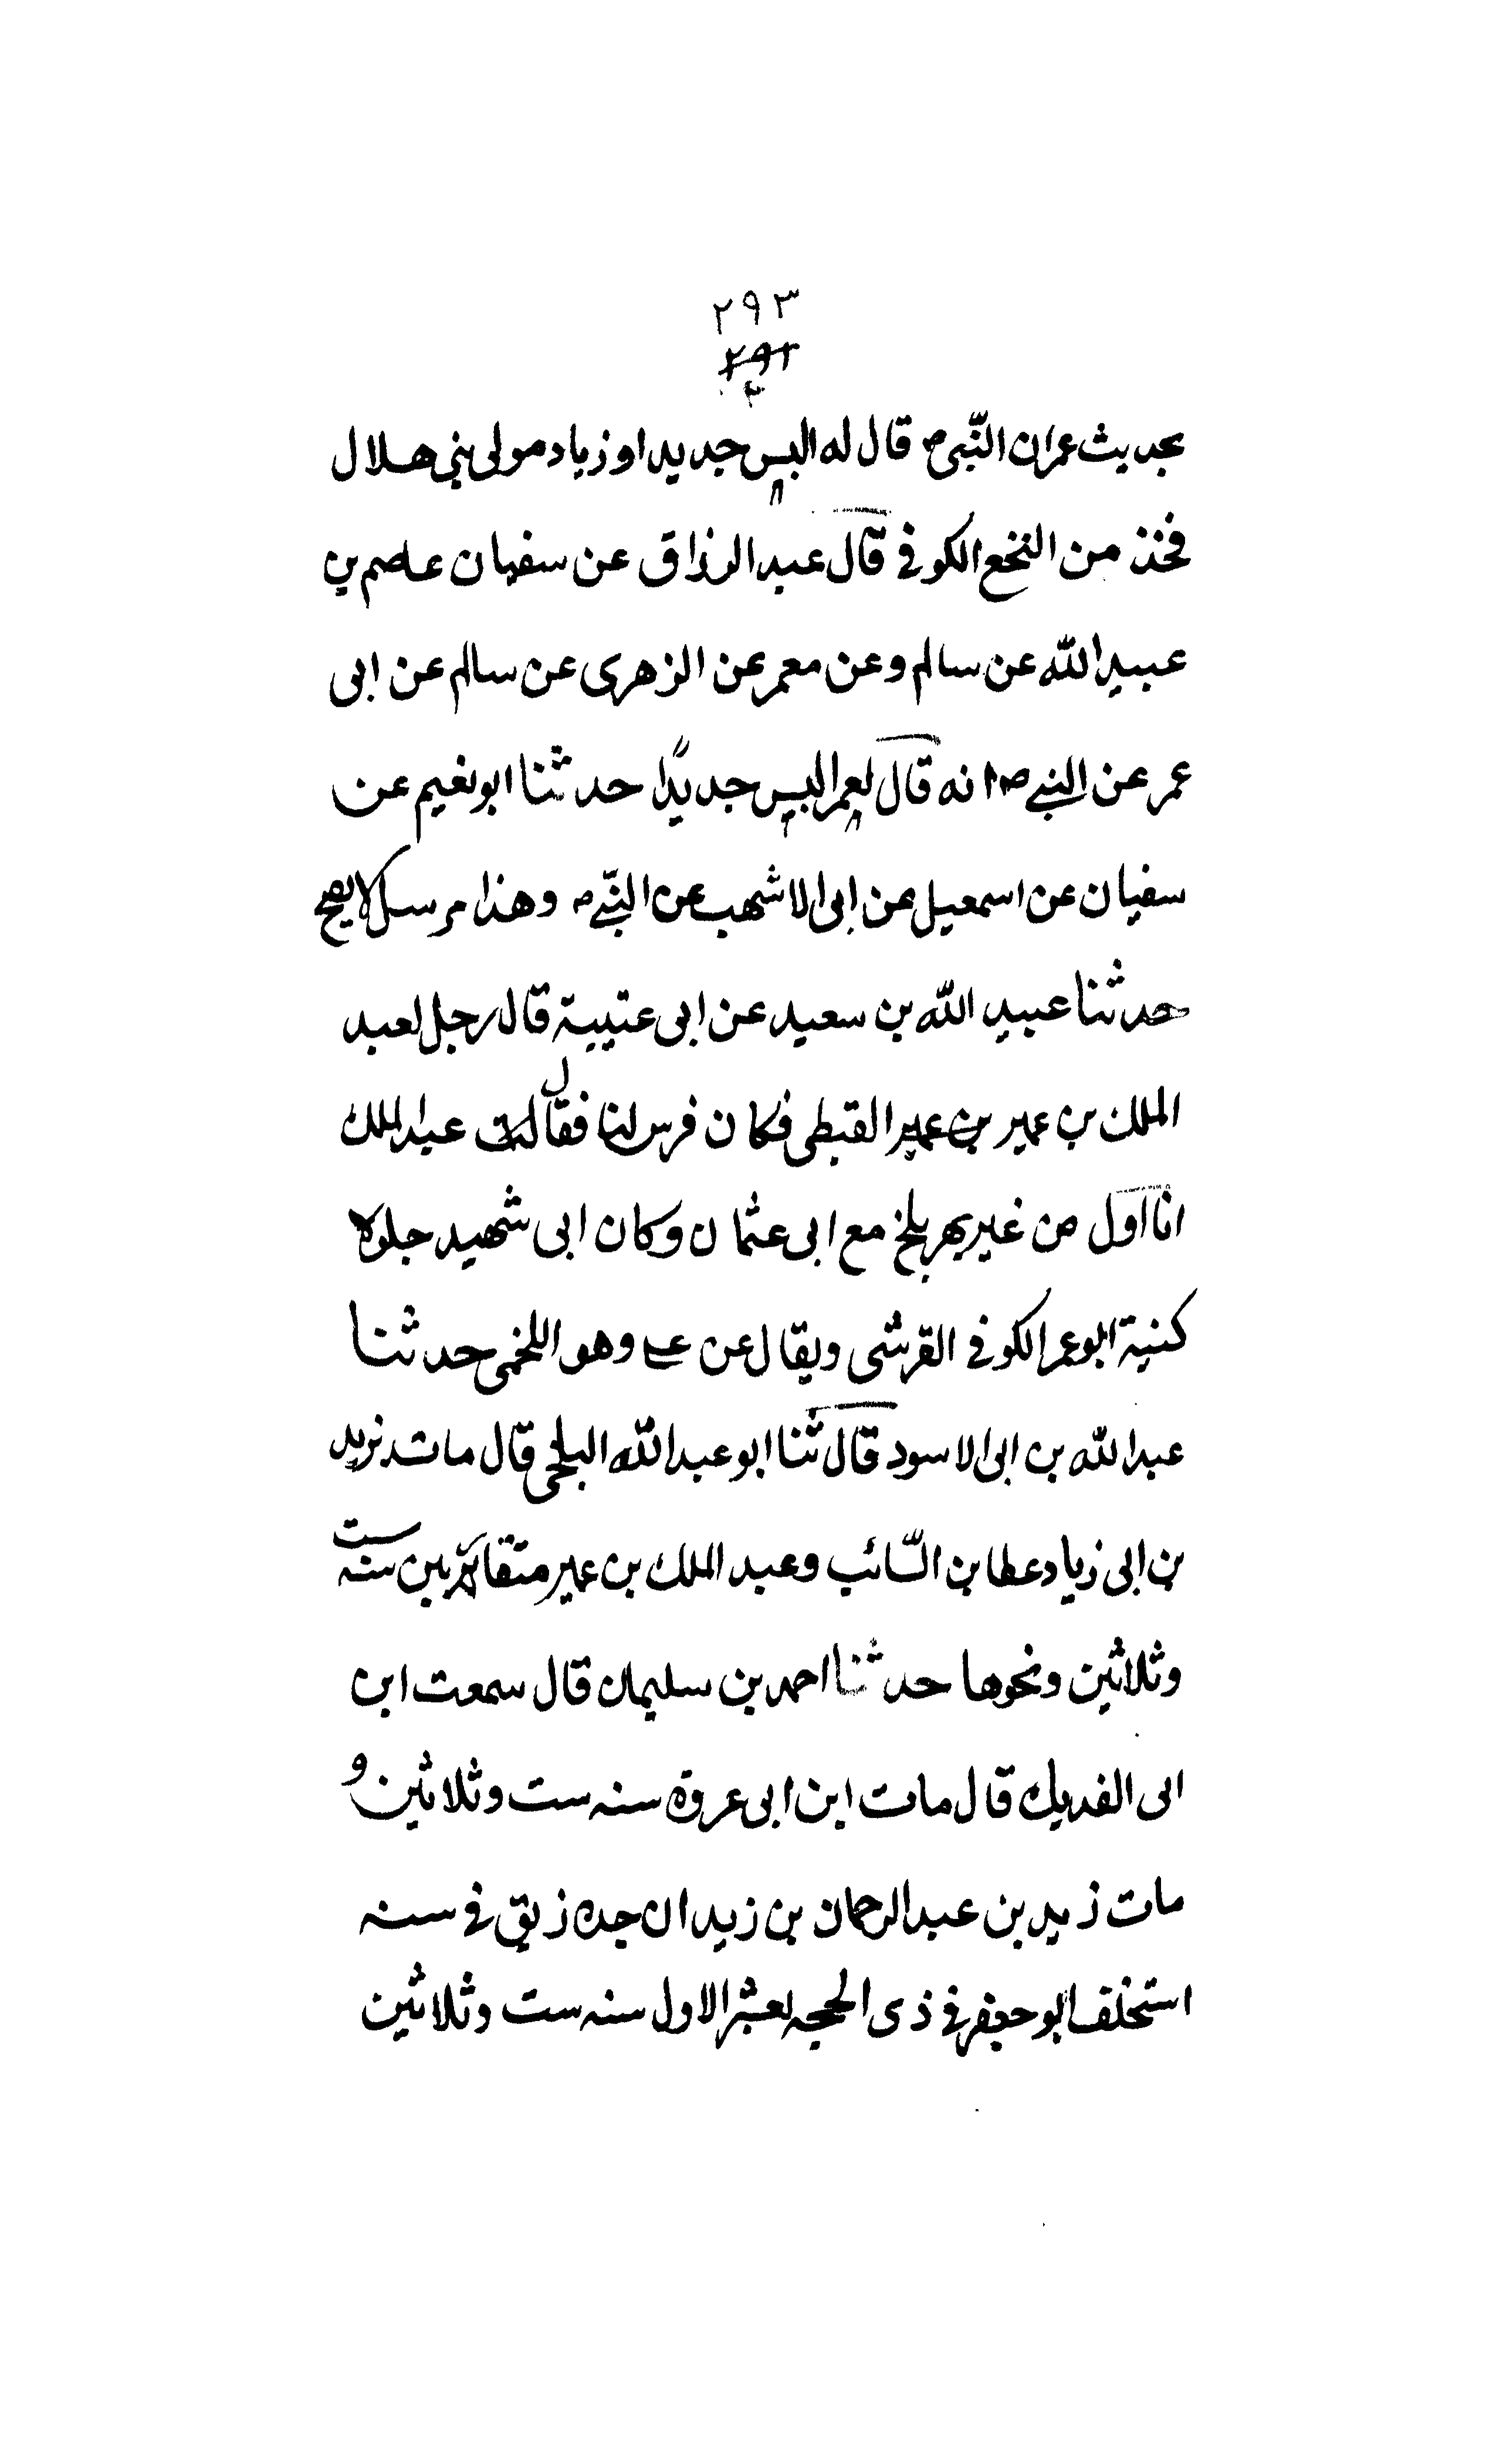 ٢٩٣
٢٩٢
بحديث عمران النّبى ص قال له البس جديدا و زياد مولى بني هلال
فخذ من النخع الكوفي قال عبد الرزاق عن سفيان عاصم بن
عبيد الله عن سالم وعن معمر عن الزهرى عن سالم عن ابى
عمر عن النبي ص انه قال لعمر البس جديدًا حدثنا ابو نعيم عن
سفيان عن اسمعيل عن ابى الاشهب عن النبّي ص وهذا مرسل لا يصح
حدثنا عبيد الله بن سعيد عن ابى عتيبة قال رجل لعبد
الملك بن عمير بن عمير القبطى فكان فرس لنا فقال عبد الملك
انا اول من عبر نهر بلخ مع ابى عثمان وكان ابى شهيد جلولاء
كنية ابو عمر الكوفي القرشى ويقال عن وهو اللخمى حدثنا
عبد الله بن ابى الاسود قال ثنا ابو عبد الله البلخى قال مات يزيد
بن ابى زياد عطا بن السّائب وعبد الملك بن عمير متقاربين سنه ست
وثلاثين ونحوها حدثنا احمد بن سليمان قال سمعت ابن
ابى الفديك قال مات ابن ابى عروة سنه ست وثلاثين و
مات زيد بن عبد الرحمان بن زيد ان جده زيق في سنه
استخلف ابو جعفر في ذى الحجه لعشر الاول سنه ست وثلاثين